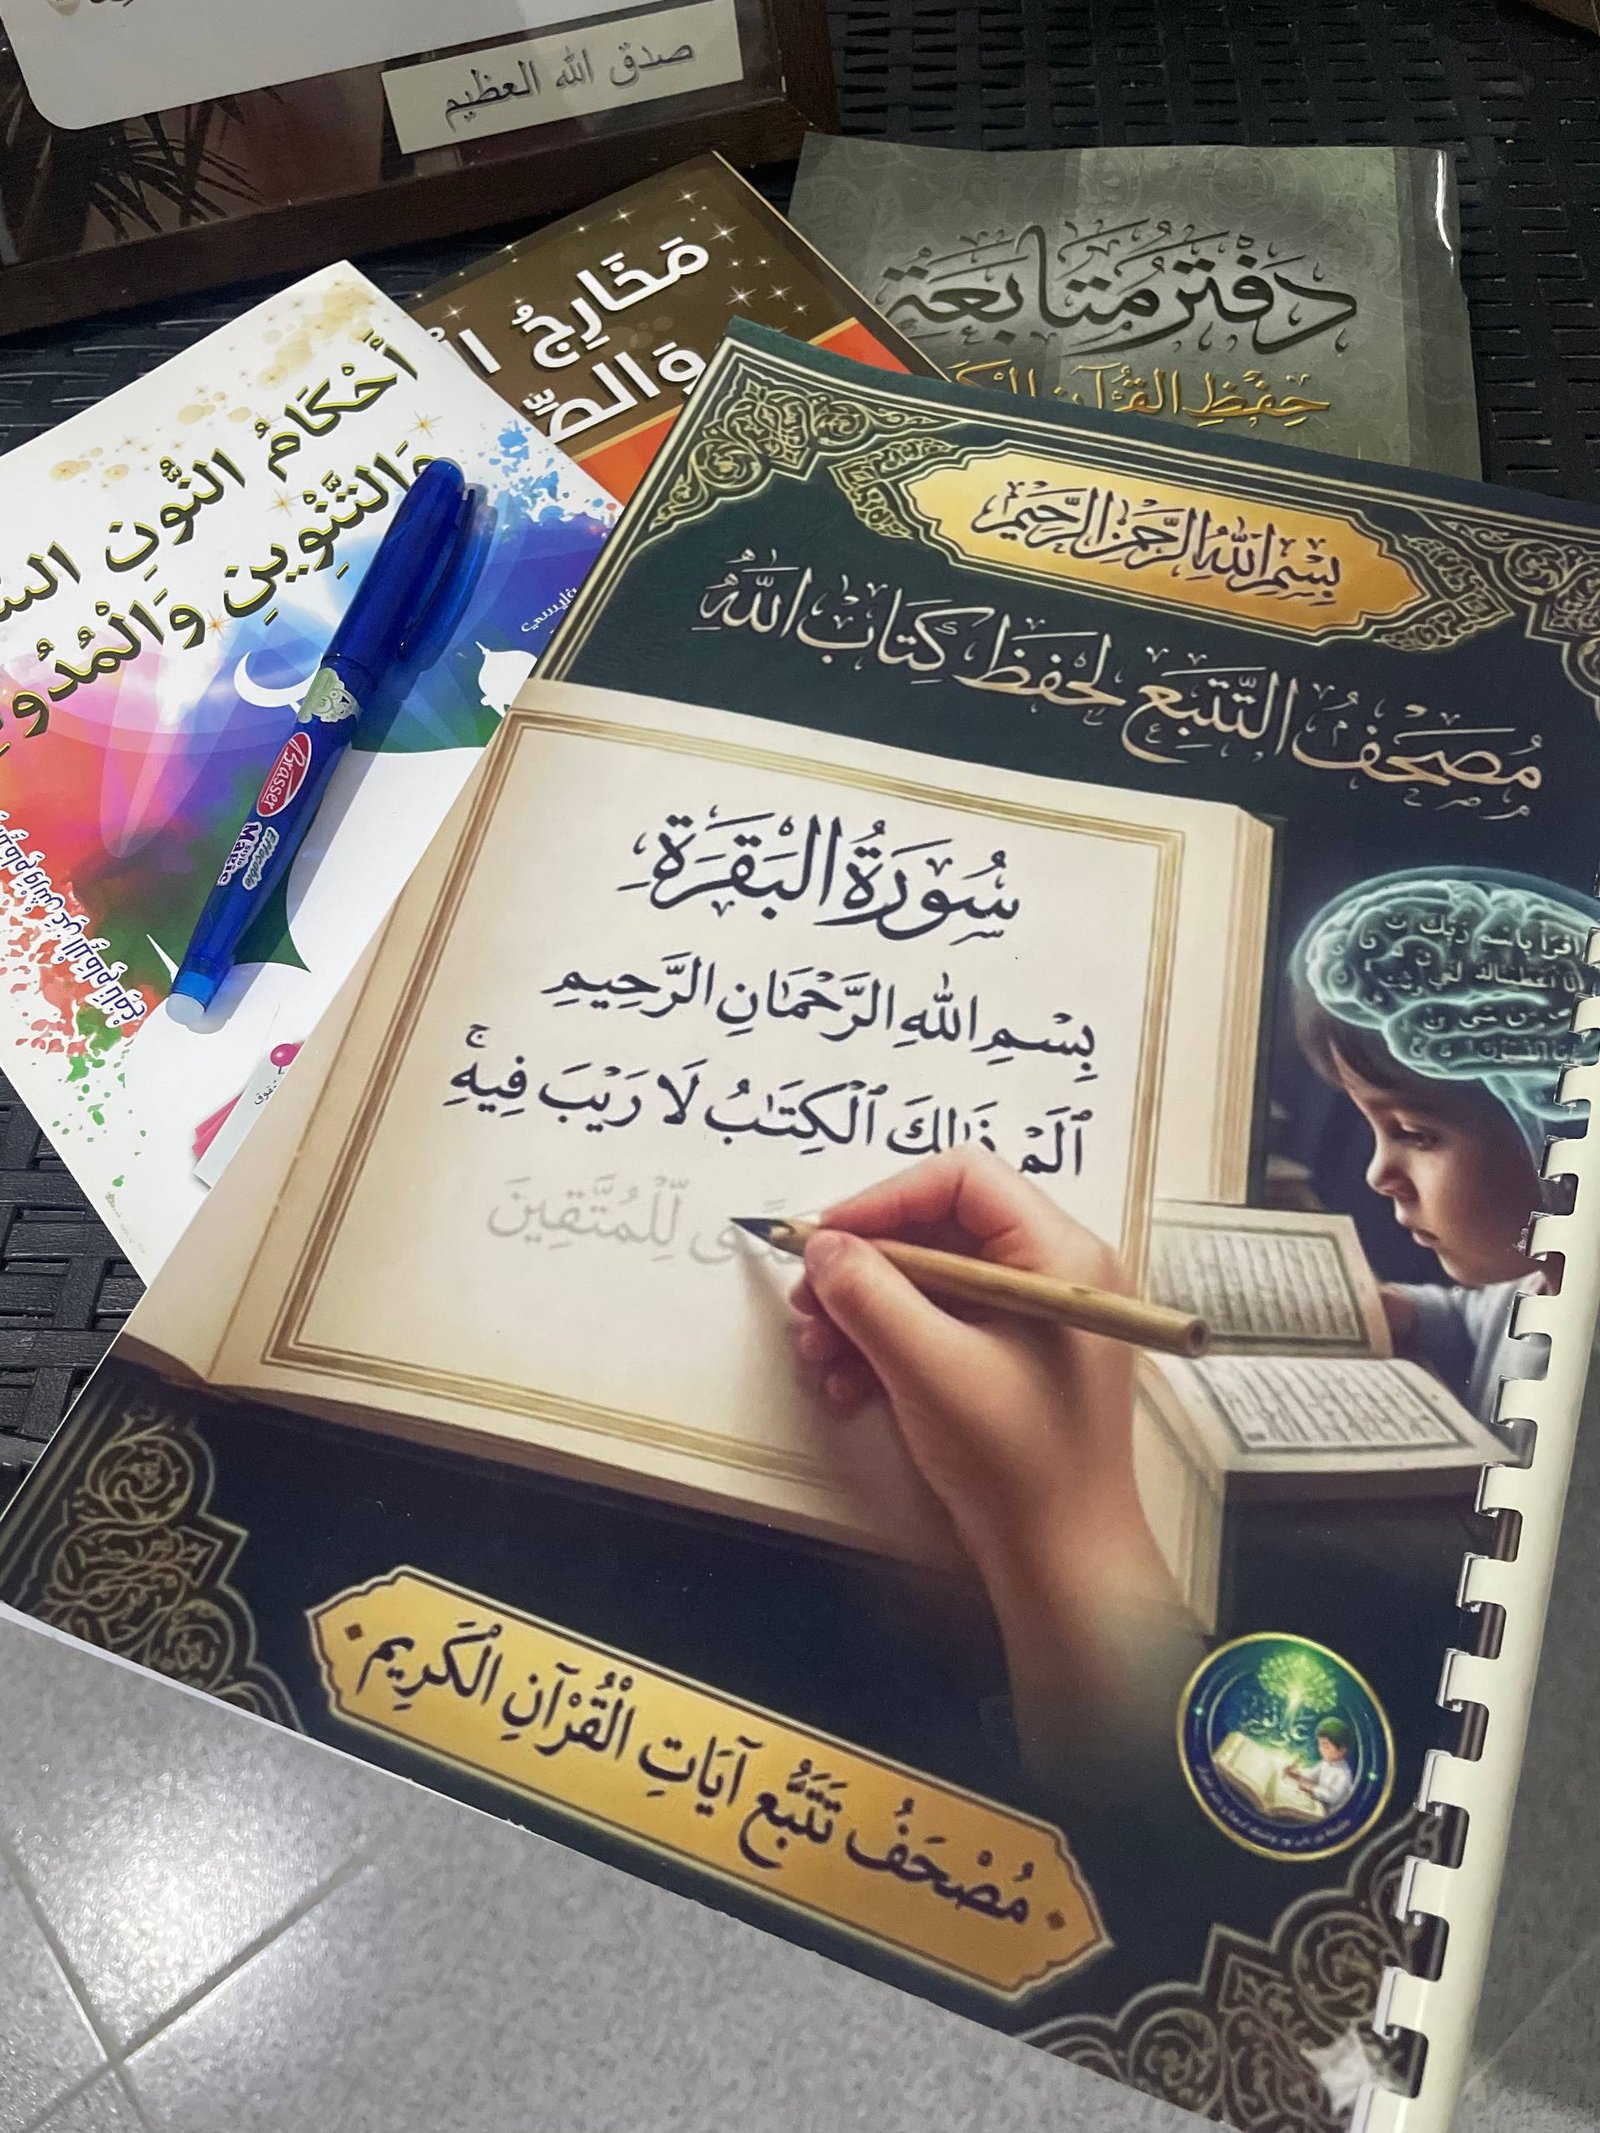 صدق الله العظيم
دَفْتَرُ مُتَابَعَةِ
حِفْظِ القُرْآن
مَخَارِجُ
أَحْكَامُ النُّونِ
وَالتَّنْوِينِ وَالْمُدُودِ
Brasser
Effaçable
Magic
بِسْمِ اللهِ الرَّحْمنِ الرَّحِيمِ
مُصْحَفُ التَّتَبُّعِ لِحِفْظِ كِتَابِ اللَّهِ
سُورَةُ البَقَرَةِ
بِسْمِ اللهِ الرَّحْمَانِ الرَّحِيمِ
الَمَ ذَالِكَ اَلْكِتَٰبُ لَا رَيْبَ فِيهِ ج
لِّلْمُتَّقِينَ
مُصْحَفُ تَتَبُّع آيَاتِ الْقُرْآنِ الْكَرِيمِ